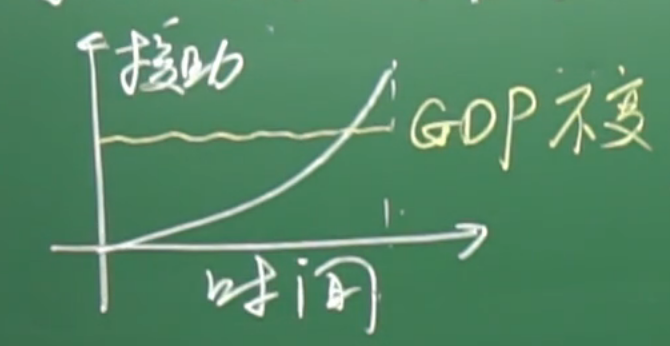 援助
GDP不变
时间